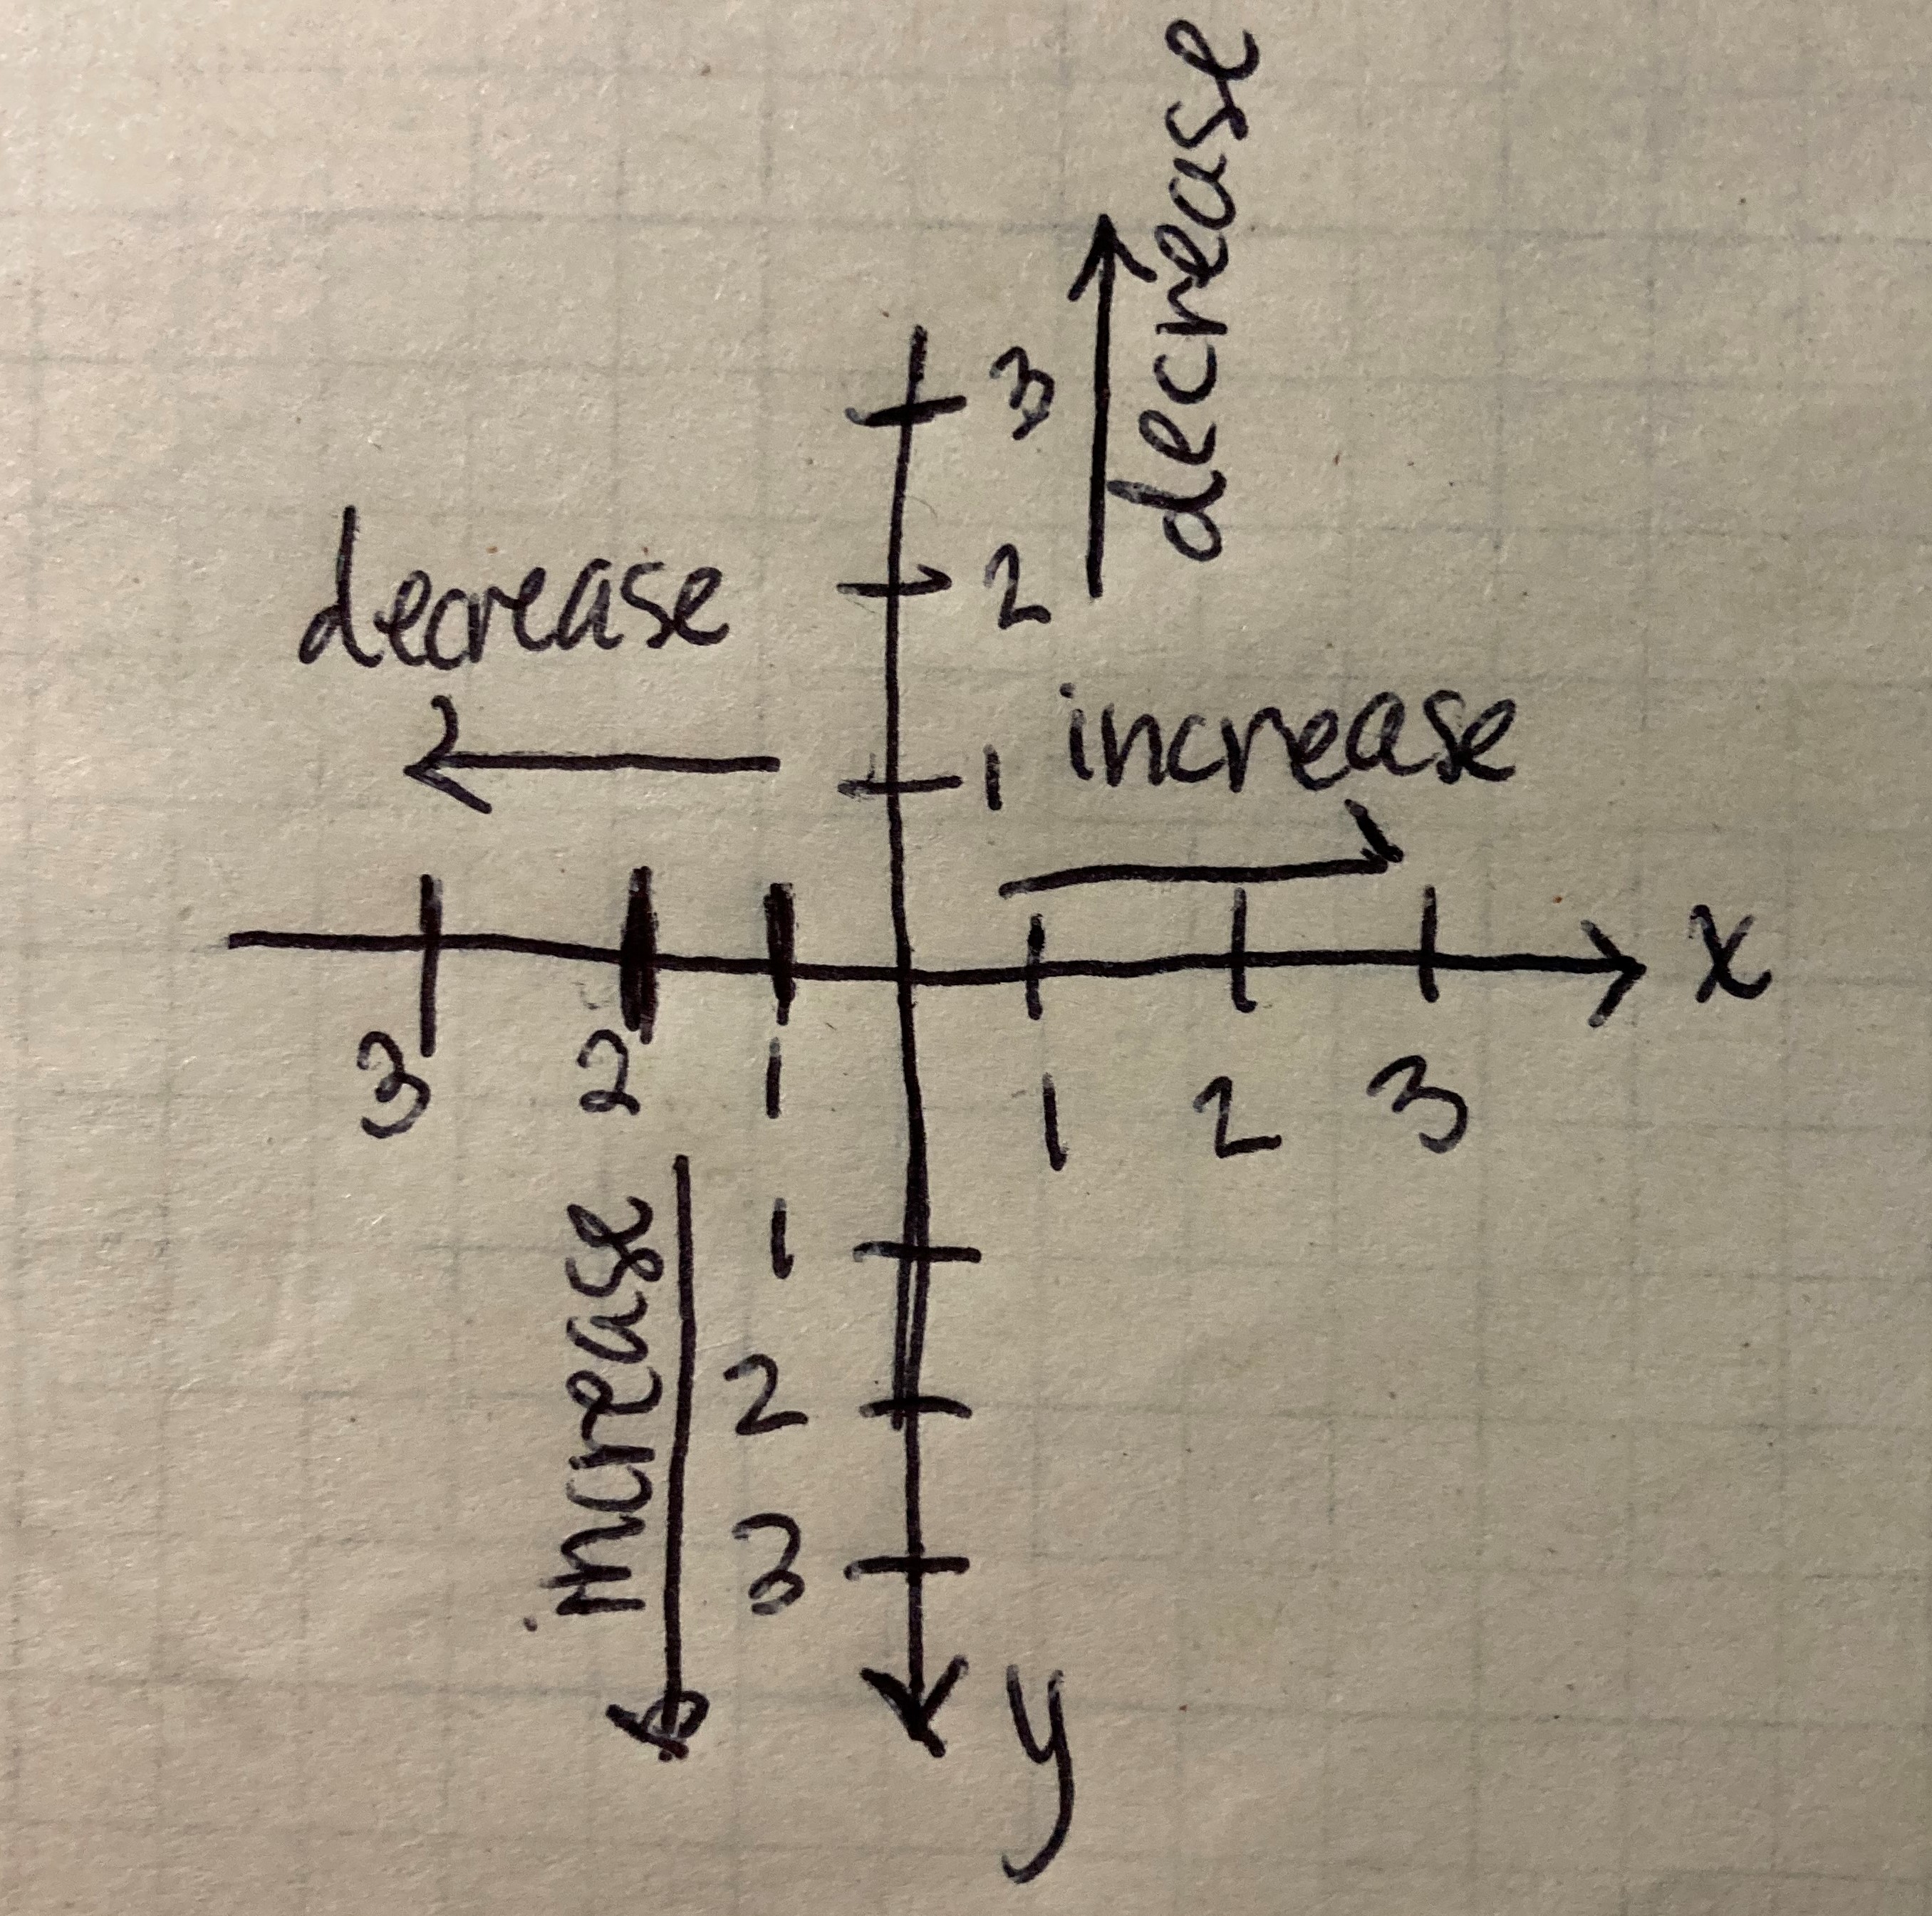 decrease
3
2
1
decrease
increase
x
3 2 1 1 2 3
increase
1
2
3
y